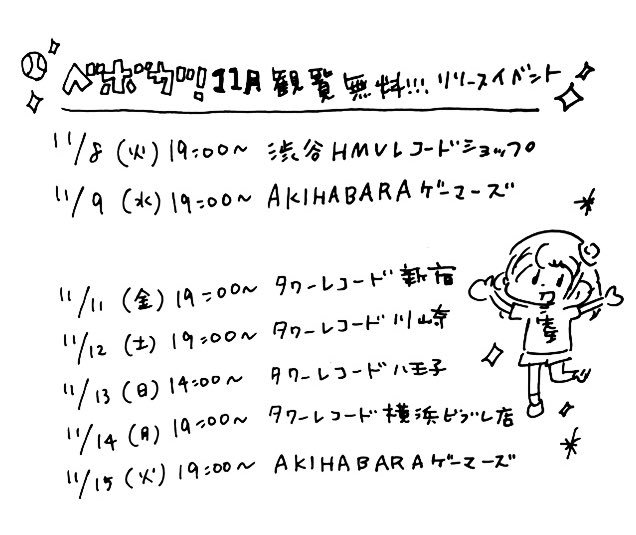 ベボガ!11月観覧無料!!!リリースイベント
11/8(火)19:00〜 渋谷HMVレコードショップ。
11/9(水)19:00〜 AKIHABARAゲーマーズ
11/11(金)19:00〜 タワーレコード新宿
11/12(土)19:00〜 タワーレコード川崎
11/13(日)14:00〜 タワーレコード八王子
11/14(月)19:00〜 タワーレコード横浜ビブレ店
11/15(火)19:00〜 AKIHABARAゲーマーズ